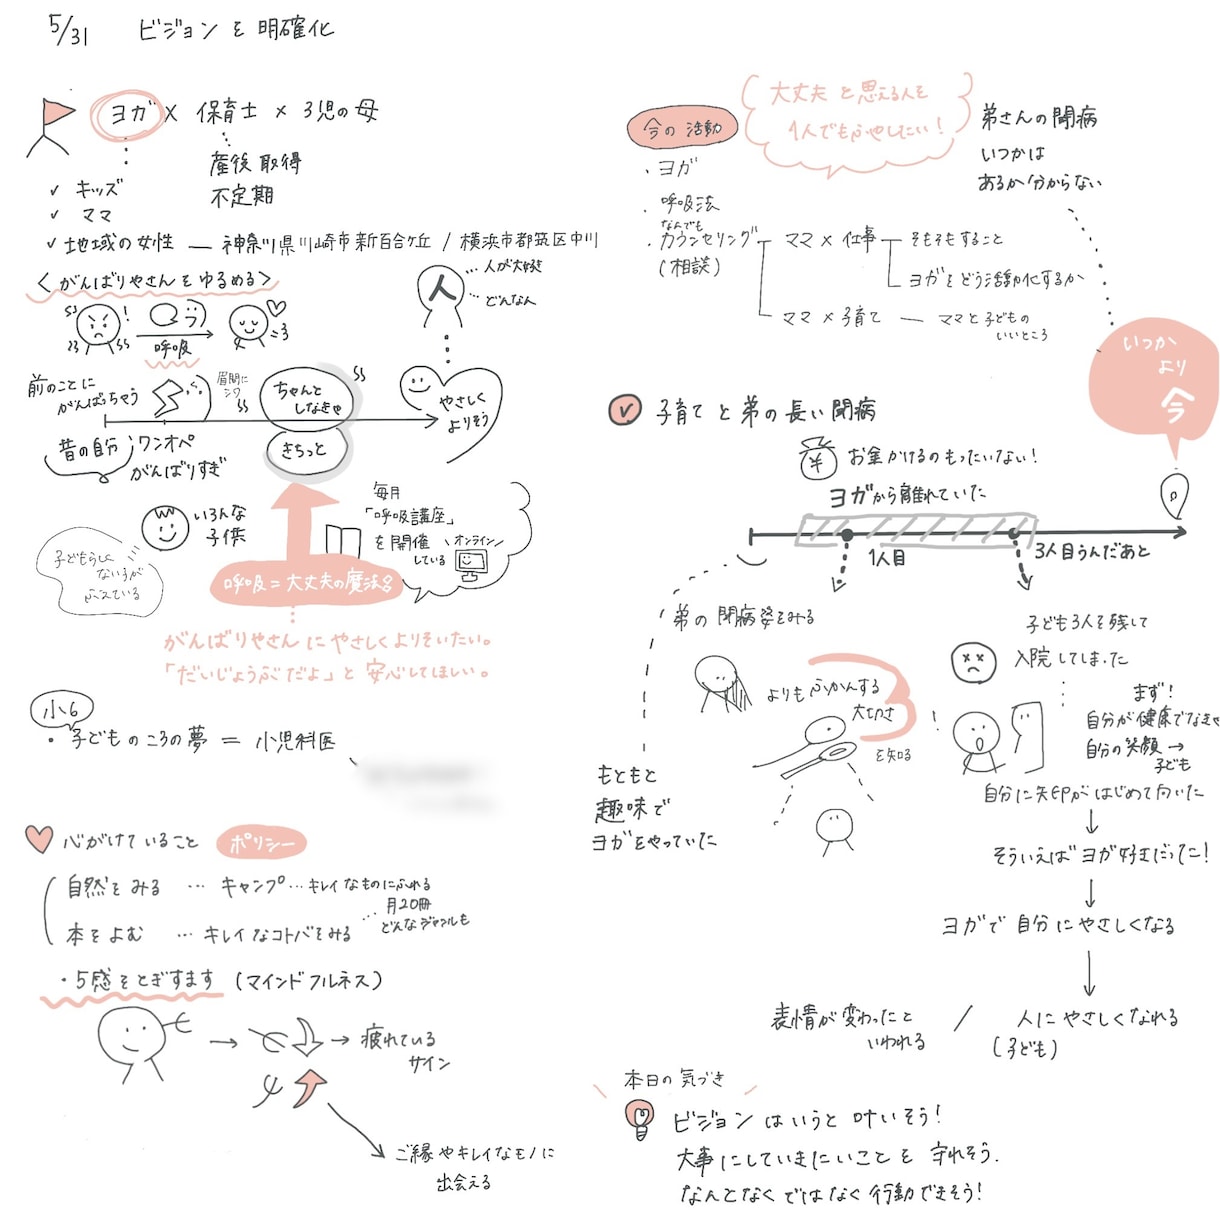 5/31 ビジョンを明確化
ヨガ × 保育士 × 3児の母
産後取得
不定期
✓ キッズ
✓ ママ
✓ 地域の女性 ― 神奈川県川崎市新百合ヶ丘 / 横浜市都筑区中川
＜がんばりやさんをゆるめる＞
フー
呼吸
人
人が大好き
どんなん
前のことに
がんばっちゃう
眉間に
シワ
ちゃんと
しなきゃ
きちっと
やさしく
よりそう
昔の自分
ワンオペ
がんばりすぎ
いろんな
子供
子どもらしく
ない子が
ふえている
毎月
「呼吸講座」
を開催
している
オンライン
呼吸=大丈夫の魔法
がんばりやさんにやさしくよりそいたい。
「だいじょうぶだよ」と安心してほしい。
小6
・子どものころの夢 = 小児科医
心がけていること ポリシー
自然をみる … キャンプ … キレイなものにふれる
本をよむ … キレイなコトバをみる
… 月20冊
どんなジャンルも
・5感をとぎすます (マインドフルネス)
疲れている
サイン
ご縁やキレイなモノに
出会える
今の活動
大丈夫と思える人を
1人でもふやしたい!
・ヨガ
・呼吸法
なんでも
・カウンセリング
(相談)
ママ×仕事 ― そもそもすること
ヨガをどう活動化するか
ママ×子育て ― ママと子どもの
いいところ
弟さんの闘病
いつかは
あるか分からない
いつか
より
今
✓ 子育てと弟の長い闘病
¥ お金かけるのもったいない!
ヨガから離れていた
1人目
3人目うんだあと
弟の闘病姿をみる
よりもふかんする
大切さ
を知る
もともと
趣味で
ヨガをやっていた
子ども3人を残して
入院してしまった
まず!
自分が健康でなきゃ
自分の笑顔→
子ども
自分に矢印がはじめて向いた
そういえばヨガ好きだった!
ヨガで自分にやさしくなる
表情が変わったと
いわれる
/
人にやさしくなれる
(子ども)
本日の気づき
ビジョンはいうと叶いそう!
大事にしていきたいことを守れそう.
なんとなくではなく行動できそう!